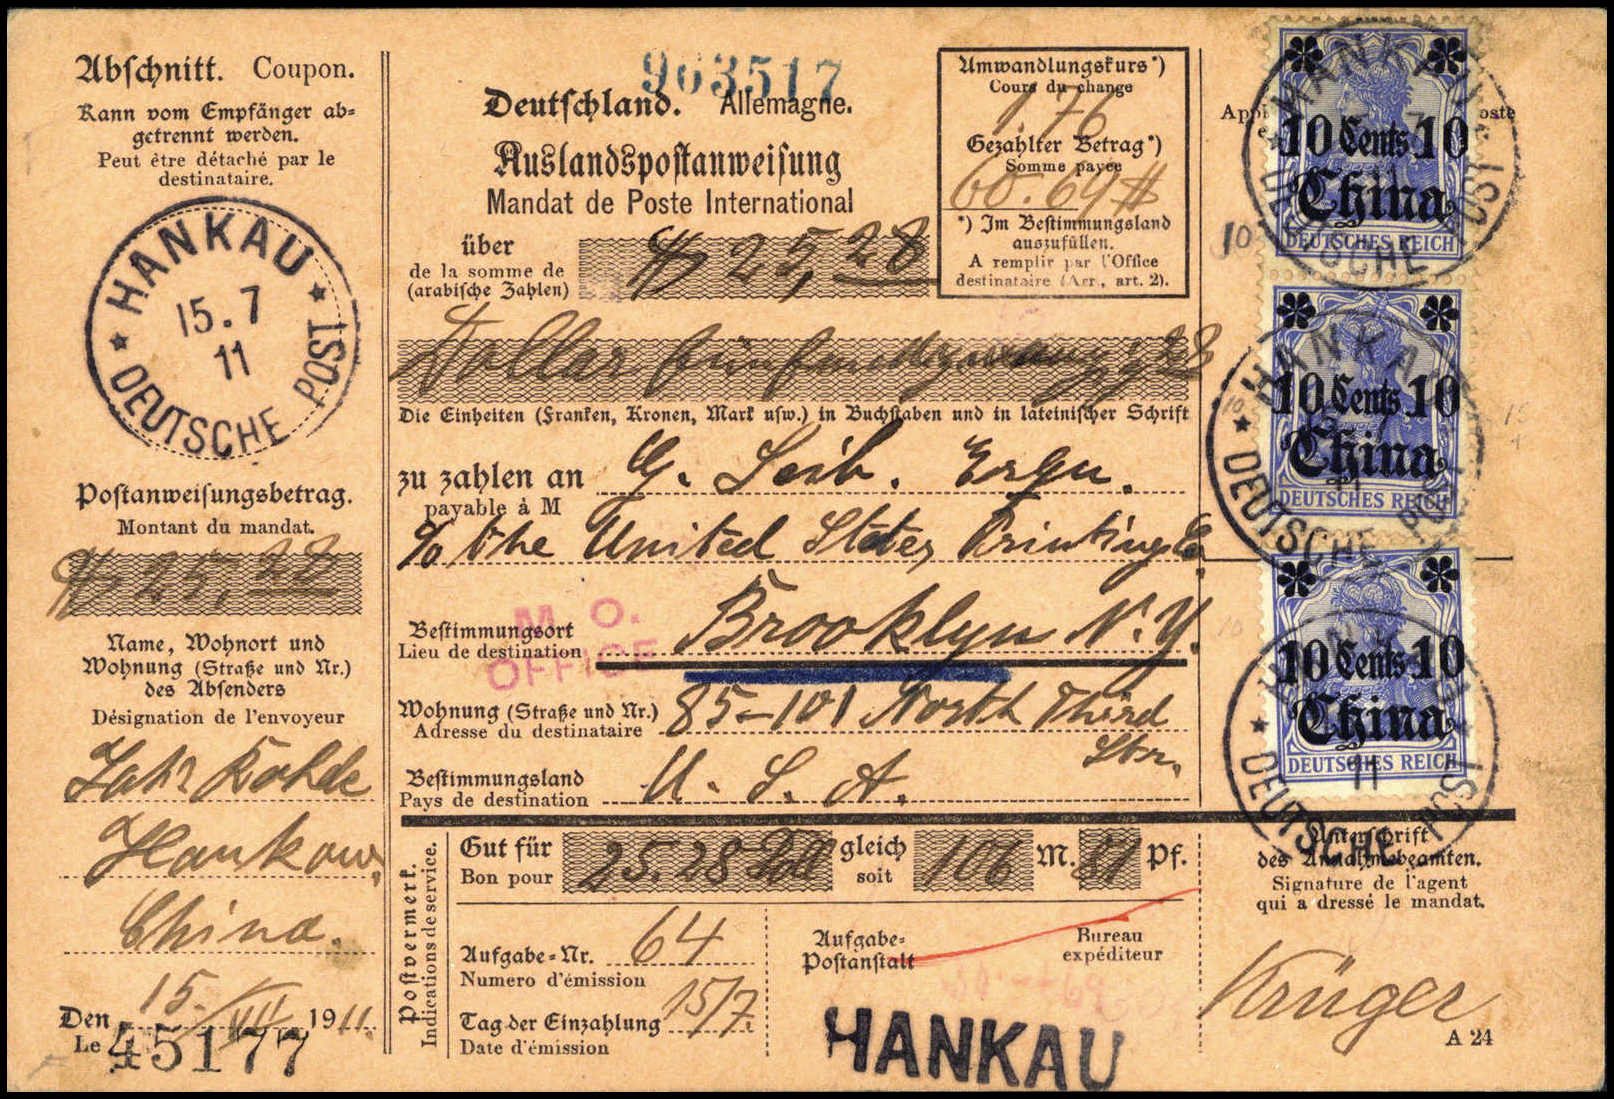 Abschnitt. Coupon.
Kann vom Empfänger ab-
getrennt werden.
Peut être détaché par le
destinataire.
HANKAU
15.7
11
DEUTSCHE POST
Postanweisungsbetrag.
Montant du mandat.
$ 25,28
Name, Wohnort und
Wohnung (Straße und Nr.)
des Absenders
Désignation de l'envoyeur
Hankow,
China.
Den 15. VII 1911.
Le
45177
963517
Deutschland. Allemagne.
Auslandspostanweisung
Mandat de Poste International
über
de la somme de
(arabische Zahlen)
$ 25,28
Umwandlungskurs*)
Cours du change
1.76
Gezahlter Betrag*)
Somme payée
60.69
*) Im Bestimmungsland
auszufüllen.
A remplir par l'Office
destinataire (Arr., art. 2).
Dollar fünfundzwanzig 28
Die Einheiten (Franken, Kronen, Mark usw.) in Buchstaben und in lateinischer Schrift
zu zahlen an G. Leib. Esqu.
payable à M
c/o the United States Printing Co,
M. O.
OFFICE
Bestimmungsort
Lieu de destination
Brooklyn N.Y.
Wohnung (Straße und Nr.)
Adresse du destinataire
85-101 North Third
Str.
Bestimmungsland
Pays de destination
U. S. A.
Postvermerk.
Indications de service.
Gut für 25.28 Doll gleich 106 M. 81 Pf.
Bon pour soit
Aufgabe-Nr. 64
Numero d'émission
Tag der Einzahlung 15/7.
Date d'émission
Aufgabe- Bureau
Postanstalt expéditeur
HANKAU
10 Cents 10
China
DEUTSCHES REICH
HANKAU
DEUTSCHE POST
10
10 Cents 10
China
DEUTSCHES REICH
HANKAU
DEUTSCHE POST
10
10 Cents 10
China
DEUTSCHES REICH
11
DEUTSCHE POST
10
Unterschrift
des Annahmebeamten.
Signature de l'agent
qui a dressé le mandat.
Krüger
A 24